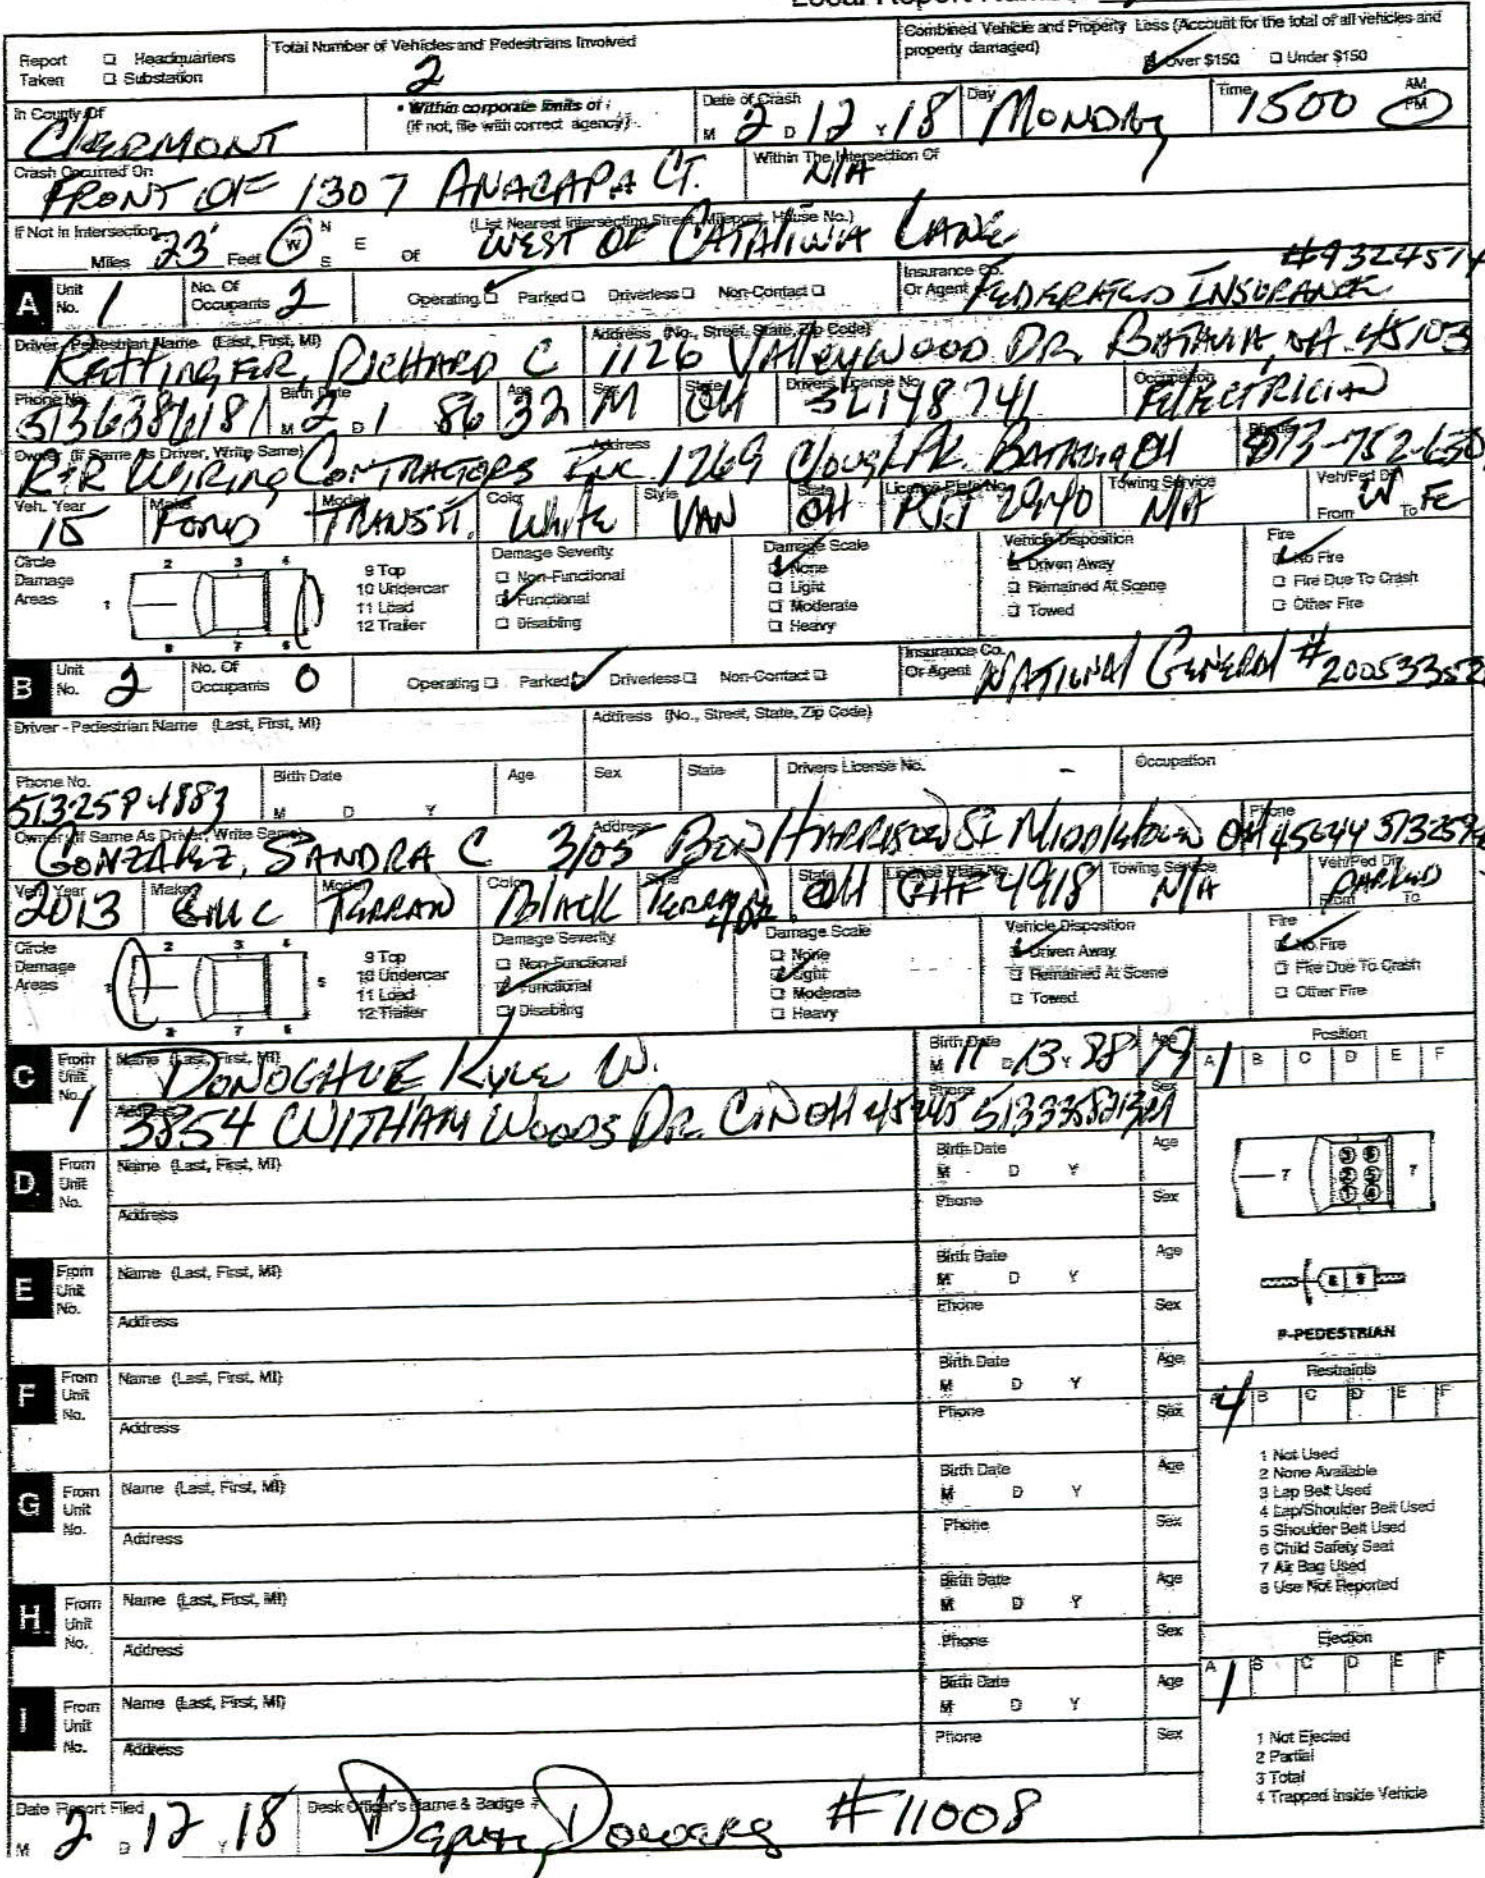 Local Report Number
Report Taken ☐ Headquarters ☐ Substation
Total Number of Vehicles and Pedestrians Involved
2
Combined Vehicle and Property Loss (Account for the total of all vehicles and property damaged)
Over $150 ☐ Under $150
In County Of
CLERMONT
• Within corporate limits of :
(if not, file with correct agency)
Date of Crash
M 2 D 12 Y 18
Day
MONDAY
Time
1500 AM PM
Crash Occurred On
FRONT OF 1307 ANACAPA CT.
Within The Intersection Of
N/A
If Not in Intersection
Miles 23' Feet W N S E Of
(List Nearest Intersecting Street, Milepost, House No.)
WEST OF CATALINA LANE
A Unit No. 1
No. Of Occupants 2
Operating ☐ Parked ☐ Driverless ☐ Non-Contact ☐
Insurance Co. Or Agent FEDERATED INSURANCE
Driver - Pedestrian Name (Last, First, MI)
RICHARD C
Address (No., Street, State, Zip Code)
1126 VALLEYWOOD DR. BATAVIA, 45103
Phone No.
Birth Date
M 2 D 1 86
Age
32
Sex
M
State
OH
Drivers License No.
Occupation
ELECTRICIAN
Owner (If Same As Driver, Write Same)
R&R WIRING CONTRACTORS INC
Address
1269 CLOUGH PK. BATAVIA OH
Phone
Veh. Year
15
Make
FORD
Model
TRANSIT.
Color
White
Style
VAN
State
OH
License Plate No.
2940
Towing Service
N/A
Veh/Ped Dir
From W To
Circle Damage Areas
1 2 3 4 6 7 8
9 Top
10 Undercar
11 Load
12 Trailer
Damage Severity
☐ Non-Functional
Functional
☐ Disabling
Damage Scale
None
☐ Light
☐ Moderate
☐ Heavy
Vehicle Disposition
Driven Away
☐ Remained At Scene
☐ Towed
Fire
No Fire
☐ Fire Due To Crash
☐ Other Fire
B Unit No. 2
No. Of Occupants 0
Operating ☐ Parked Driverless ☐ Non-Contact ☐
Insurance Co. Or Agent NATIONAL GENERAL #
Driver - Pedestrian Name (Last, First, MI)
Address (No., Street, State, Zip Code)
Phone No.
5132594883
Birth Date
M D Y
Age
Sex
State
Drivers License No.
Occupation
Owner (If Same As Driver, Write Same)
GONZALEZ, SANDRA C
Address
3105 BEN HARRISON ST MIDDLETOWN OH
Phone
Veh. Year
2013
Make
GMC
Model
TERRAIN
Color
BLACK
Style
State
OH
License Plate No.
4918
Towing Service
N/A
Veh/Ped Dir
PARKED
From To
Circle Damage Areas
2 3 4 5 6 7 8
9 Top
10 Undercar
11 Load
12 Trailer
Damage Severity
☐ Non-Functional
Functional
☐ Disabling
Damage Scale
☐ None
Light
☐ Moderate
☐ Heavy
Vehicle Disposition
Driven Away
☐ Remained At Scene
☐ Towed
Fire
No Fire
☐ Fire Due To Crash
☐ Other Fire
C From Unit No. 1
Name (Last, First, MI)
DONOGHUE, KYLE W.
Birth Date
M 11 D 13 Y
Age
Address
3854 WITHAM WOODS DR. CIN OH
Phone
Sex
Position
A B C D E F
1
D. From Unit No.
Name (Last, First, MI)
Birth Date
M D Y
Age
Address
Phone
Sex
7 7
E From Unit No.
Name (Last, First, MI)
Birth Date
M D Y
Age
Address
Phone
Sex
P-PEDESTRIAN
F From Unit No.
Name (Last, First, MI)
Birth Date
M D Y
Age
Address
Phone
Sex
Restraints
4 B C D E F
G From Unit No.
Name (Last, First, MI)
Birth Date
M D Y
Age
Address
Phone
Sex
1 Not Used
2 None Available
3 Lap Belt Used
4 Lap/Shoulder Belt Used
5 Shoulder Belt Used
6 Child Safety Seat
7 Air Bag Used
8 Use Not Reported
H From Unit No.
Name (Last, First, MI)
Birth Date
M D Y
Age
Address
Phone
Sex
Ejection
A B C D E F
1
I From Unit No.
Name (Last, First, MI)
Birth Date
M D Y
Age
Address
Phone
Sex
1 Not Ejected
2 Partial
3 Total
4 Trapped Inside Vehicle
Date Report Filed
M 2 D 12 Y 18
Desk Officer's Name & Badge #
#11008